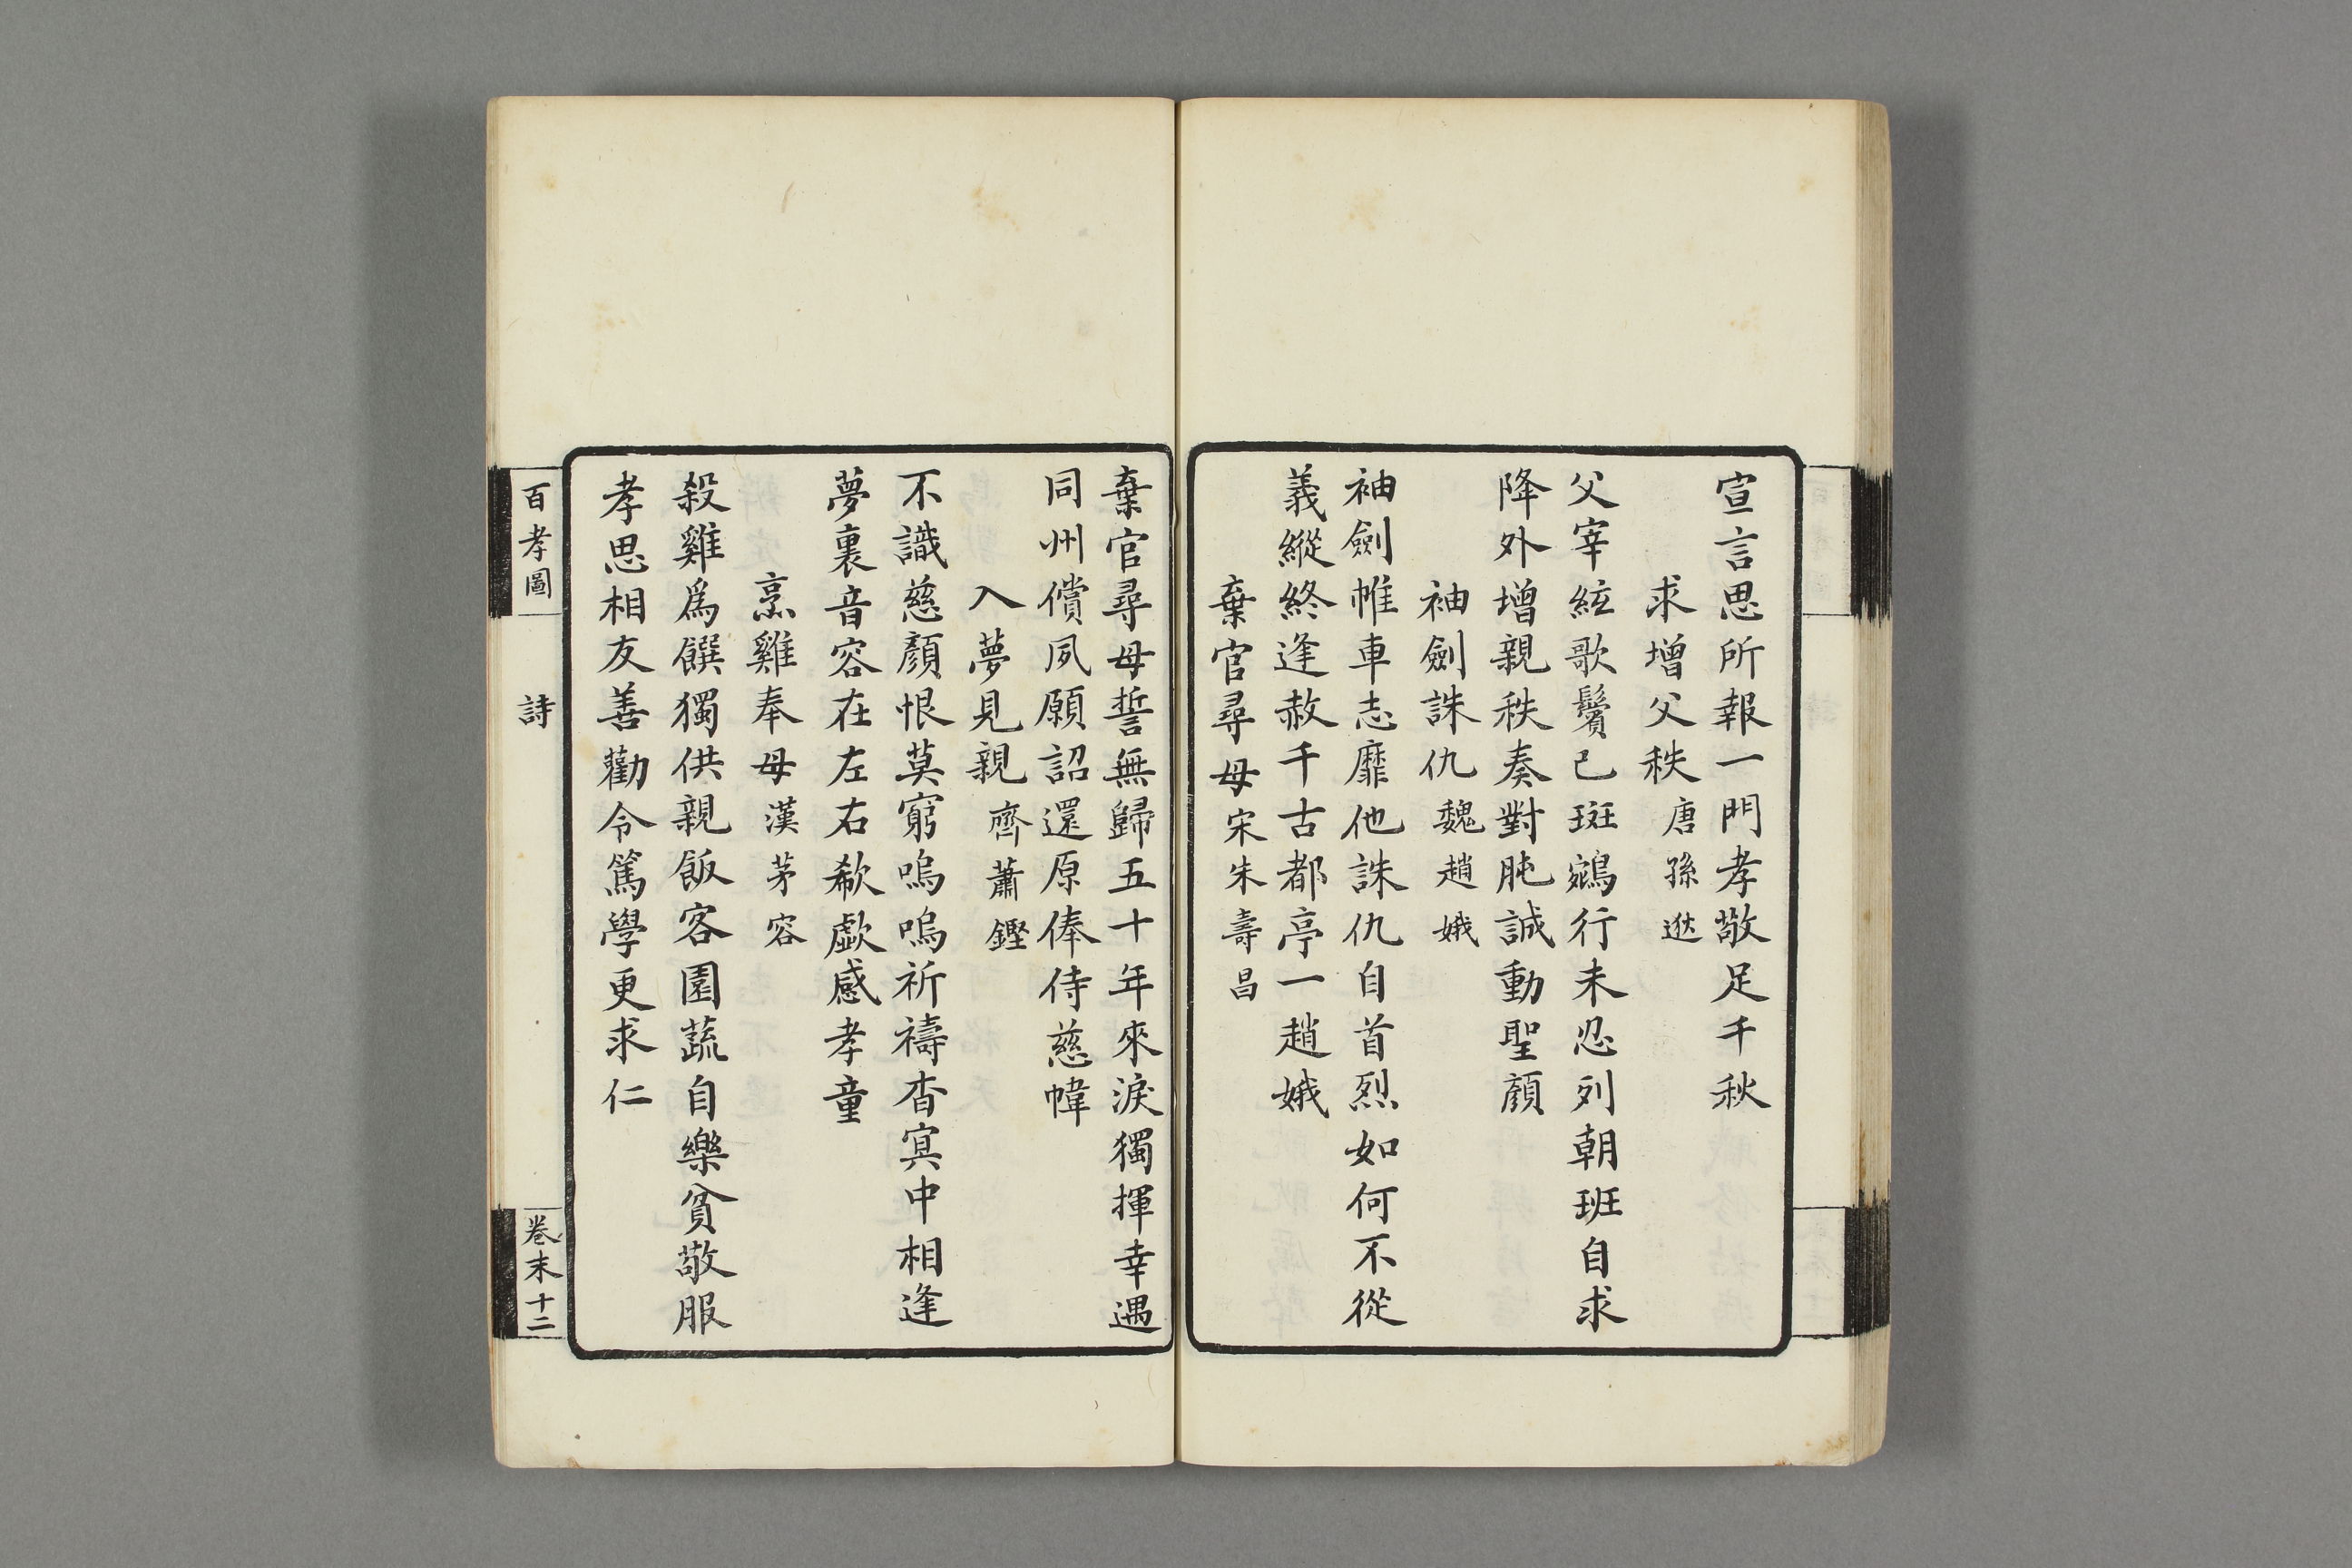 宣言思所報一門孝敬足千秋
求增父秩唐孫逖
父宰絃歌鬢已斑鵷行未忍列朝班自求
降外增親秩奏對肫誠動聖顏
袖劍誅仇魏趙娥
袖劍帷車志靡他誅仇自首烈如何不從
義縱終逢赦千古都亭一趙娥
棄官尋母宋朱壽昌
棄官尋母誓無歸五十年來淚獨揮幸遇
同州償夙願詔還原俸侍慈幃
入夢見親齊蕭鏗
不識慈顏恨莫窮嗚嗚祈禱杳冥中相逢
夢裏音容在左右欷歔感孝童
烹雞奉母漢茅容
殺雞爲饌獨供親飯客園蔬自樂貧敬服
孝思相友善勸令篤學更求仁
百孝圖
詩
卷末十二